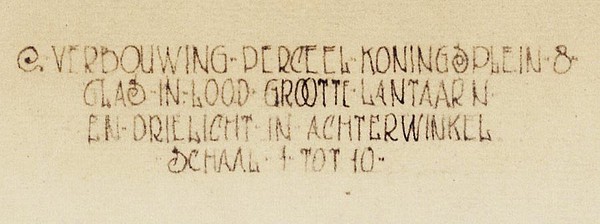 C. VERBOUWING PERCEEL KONINGSPLEIN 8
GLAS-IN-LOOD GROOTTE LANTAARN
EN DRIELICHT IN ACHTERWINKEL
SCHAAL 1 TOT 10